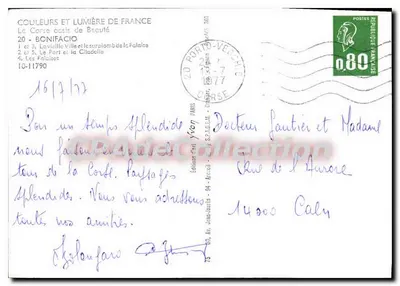 COULEURS ET LUMIÈRE DE FRANCE
La Corse écrin de Beauté
20 - BONIFACIO
1 et 3. La vieille Ville et le surplomb de la falaise
2 et 5. Le Port et la Citadelle
4. Les Falaises
10-11790
20 PORTO-VECCHIO
1977
CORSE
POSTES
0,80
FRANÇAISE
16/7/77
Par un temps splendide
nous faisons
tour de la Corse. Paysages
splendides. Nous vous adressons
toutes nos amitiés.
Docteur Gautier et Madame
Rue de l'Aurore
14000 Caen
Yvon
PARIS